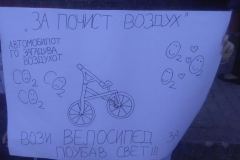 "ЗА ПОЧИСТ ВОЗДУХ"
АВТОМОБИЛОТ
ГО ЗАГАДУВА
ВОЗДУХОТ
CO2 CO2
CO2
O2
O2
O2
ВОЗИ ВЕЛОСИПЕД ЗА
ПОУБАВ СВЕТ!!!